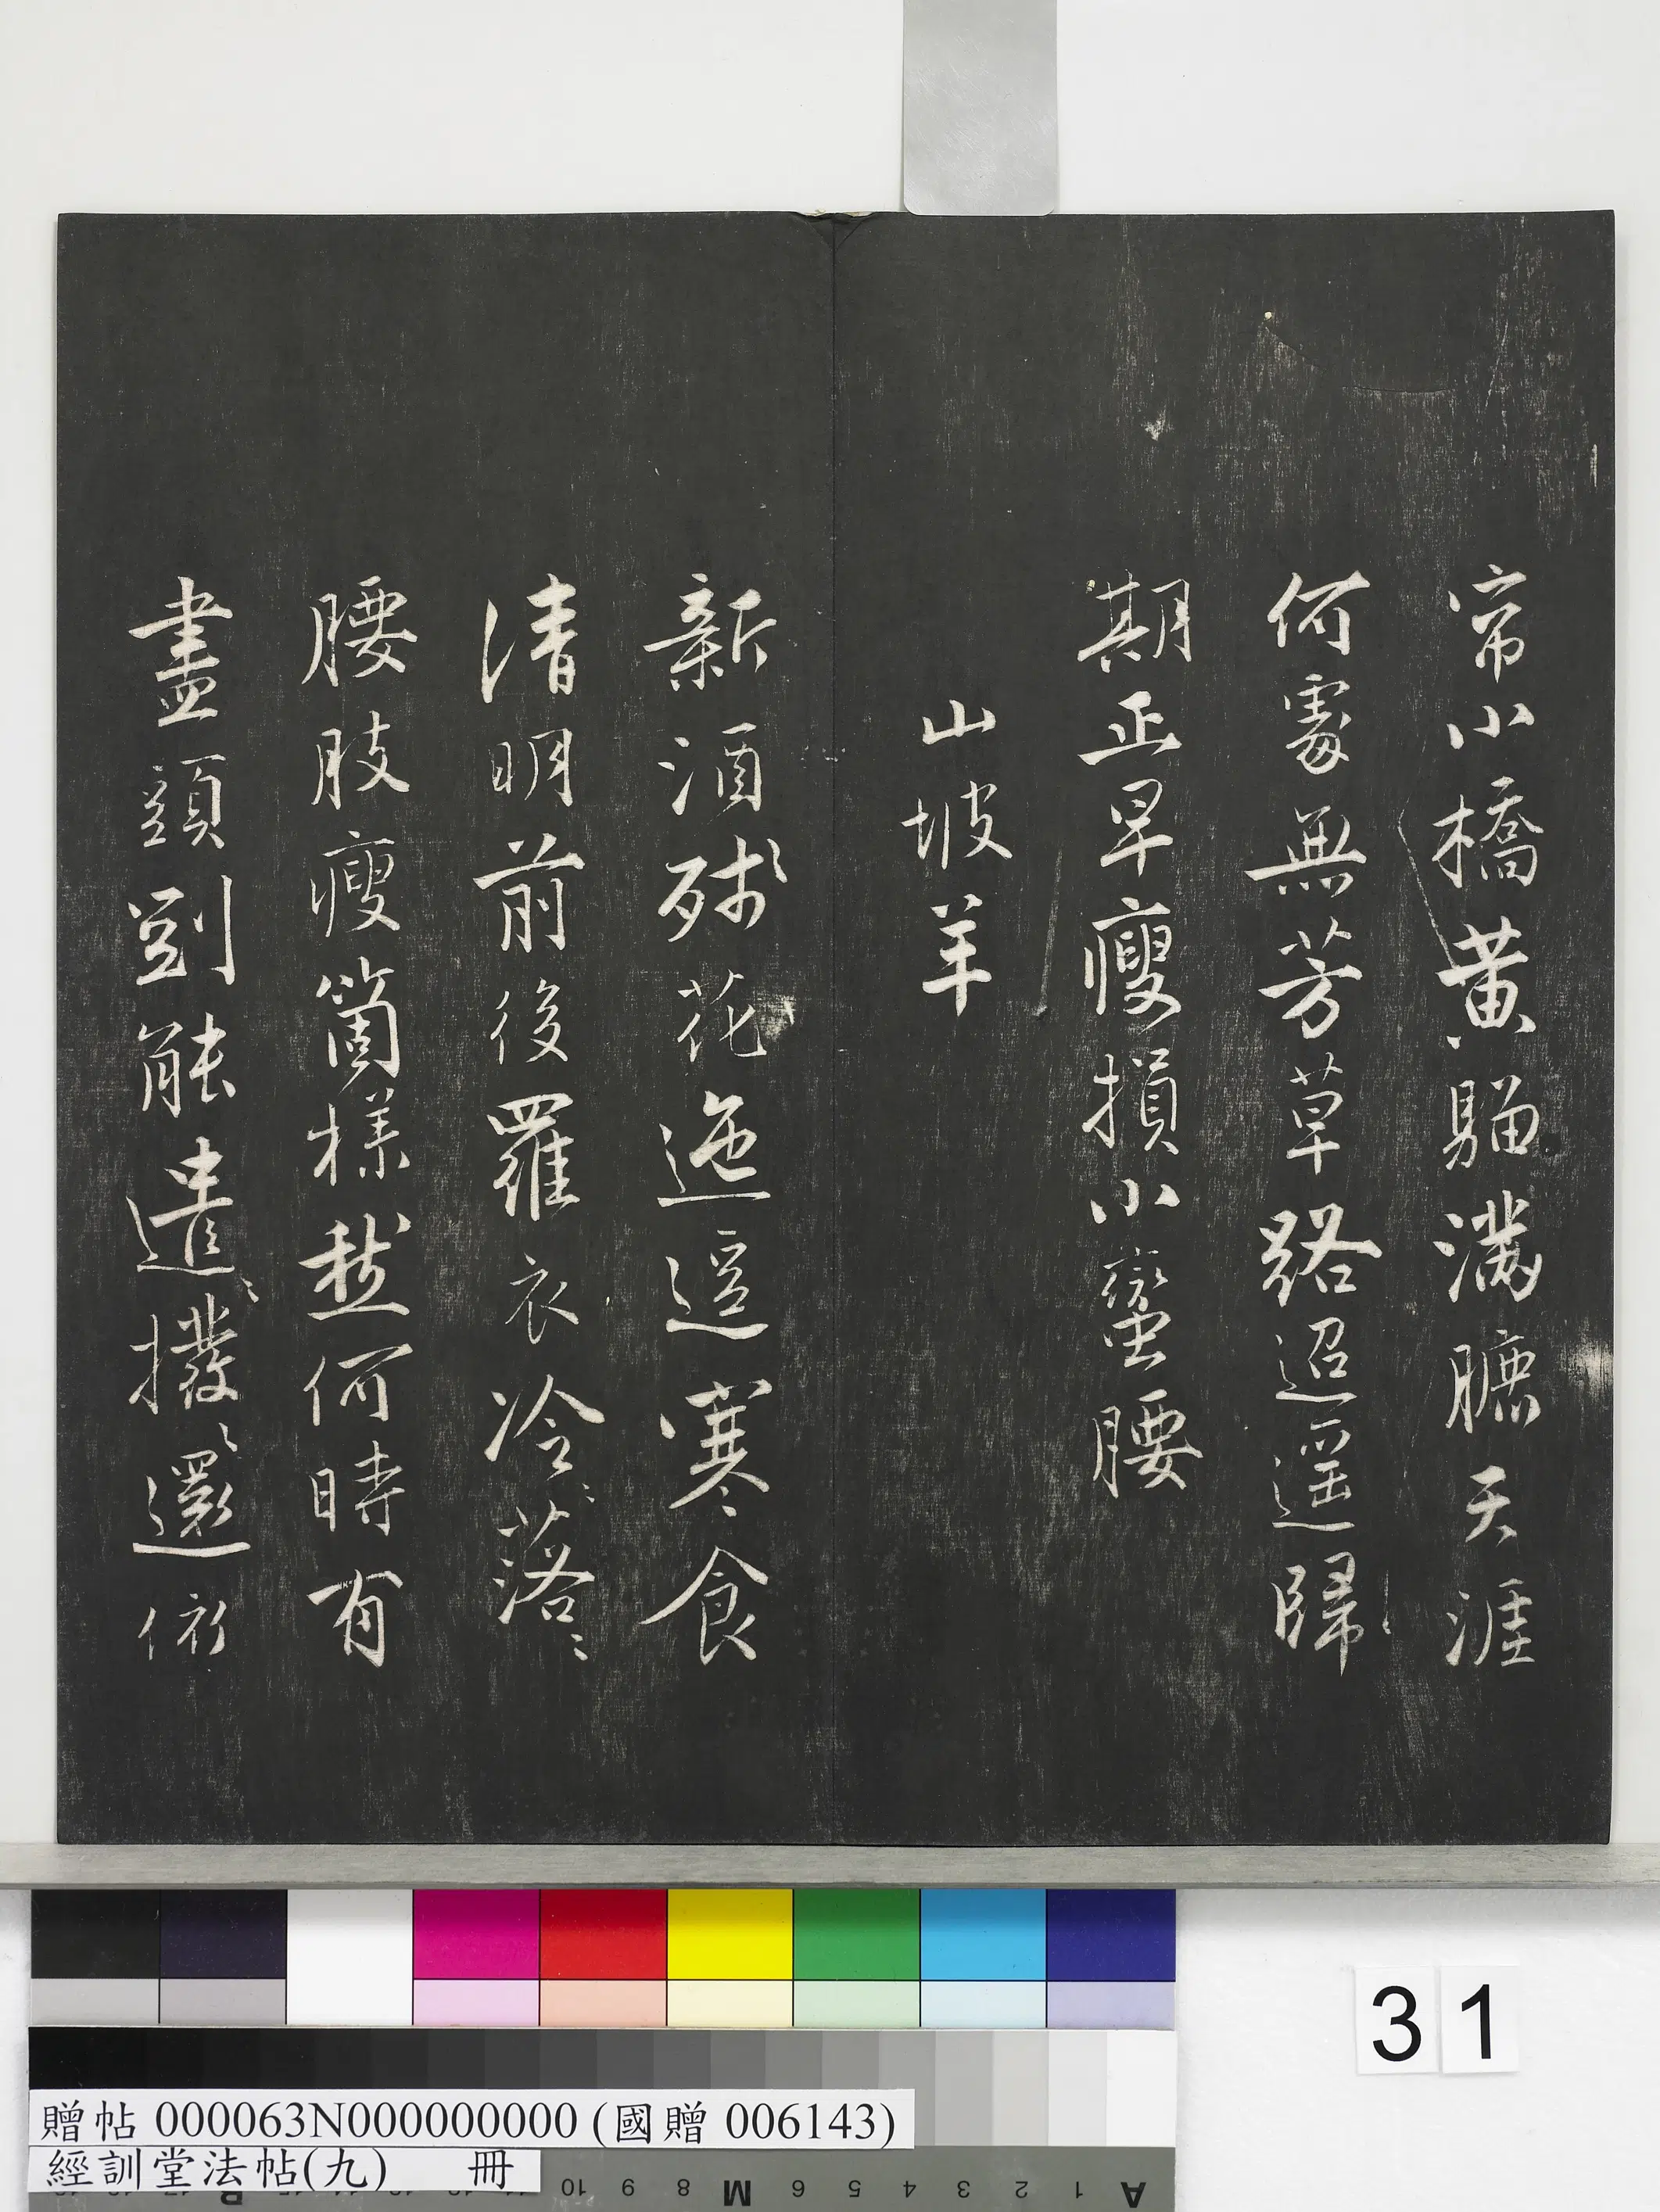 帘小橋黃騮滿臕天涯
何處無芳草路迢遙歸
期正早瘦損小蠻腰
山坡羊
新酒殘花迤逗寒食
清明前後羅衣冷〻落〻
腰肢瘦箇樣愁何時有
盡頭剛能遣〻撥〻還依
31
贈帖 000063N000000000 (國贈 006143)
經訓堂法帖(九) 冊
10 9 8 M 6 5 4 3 2 1 A